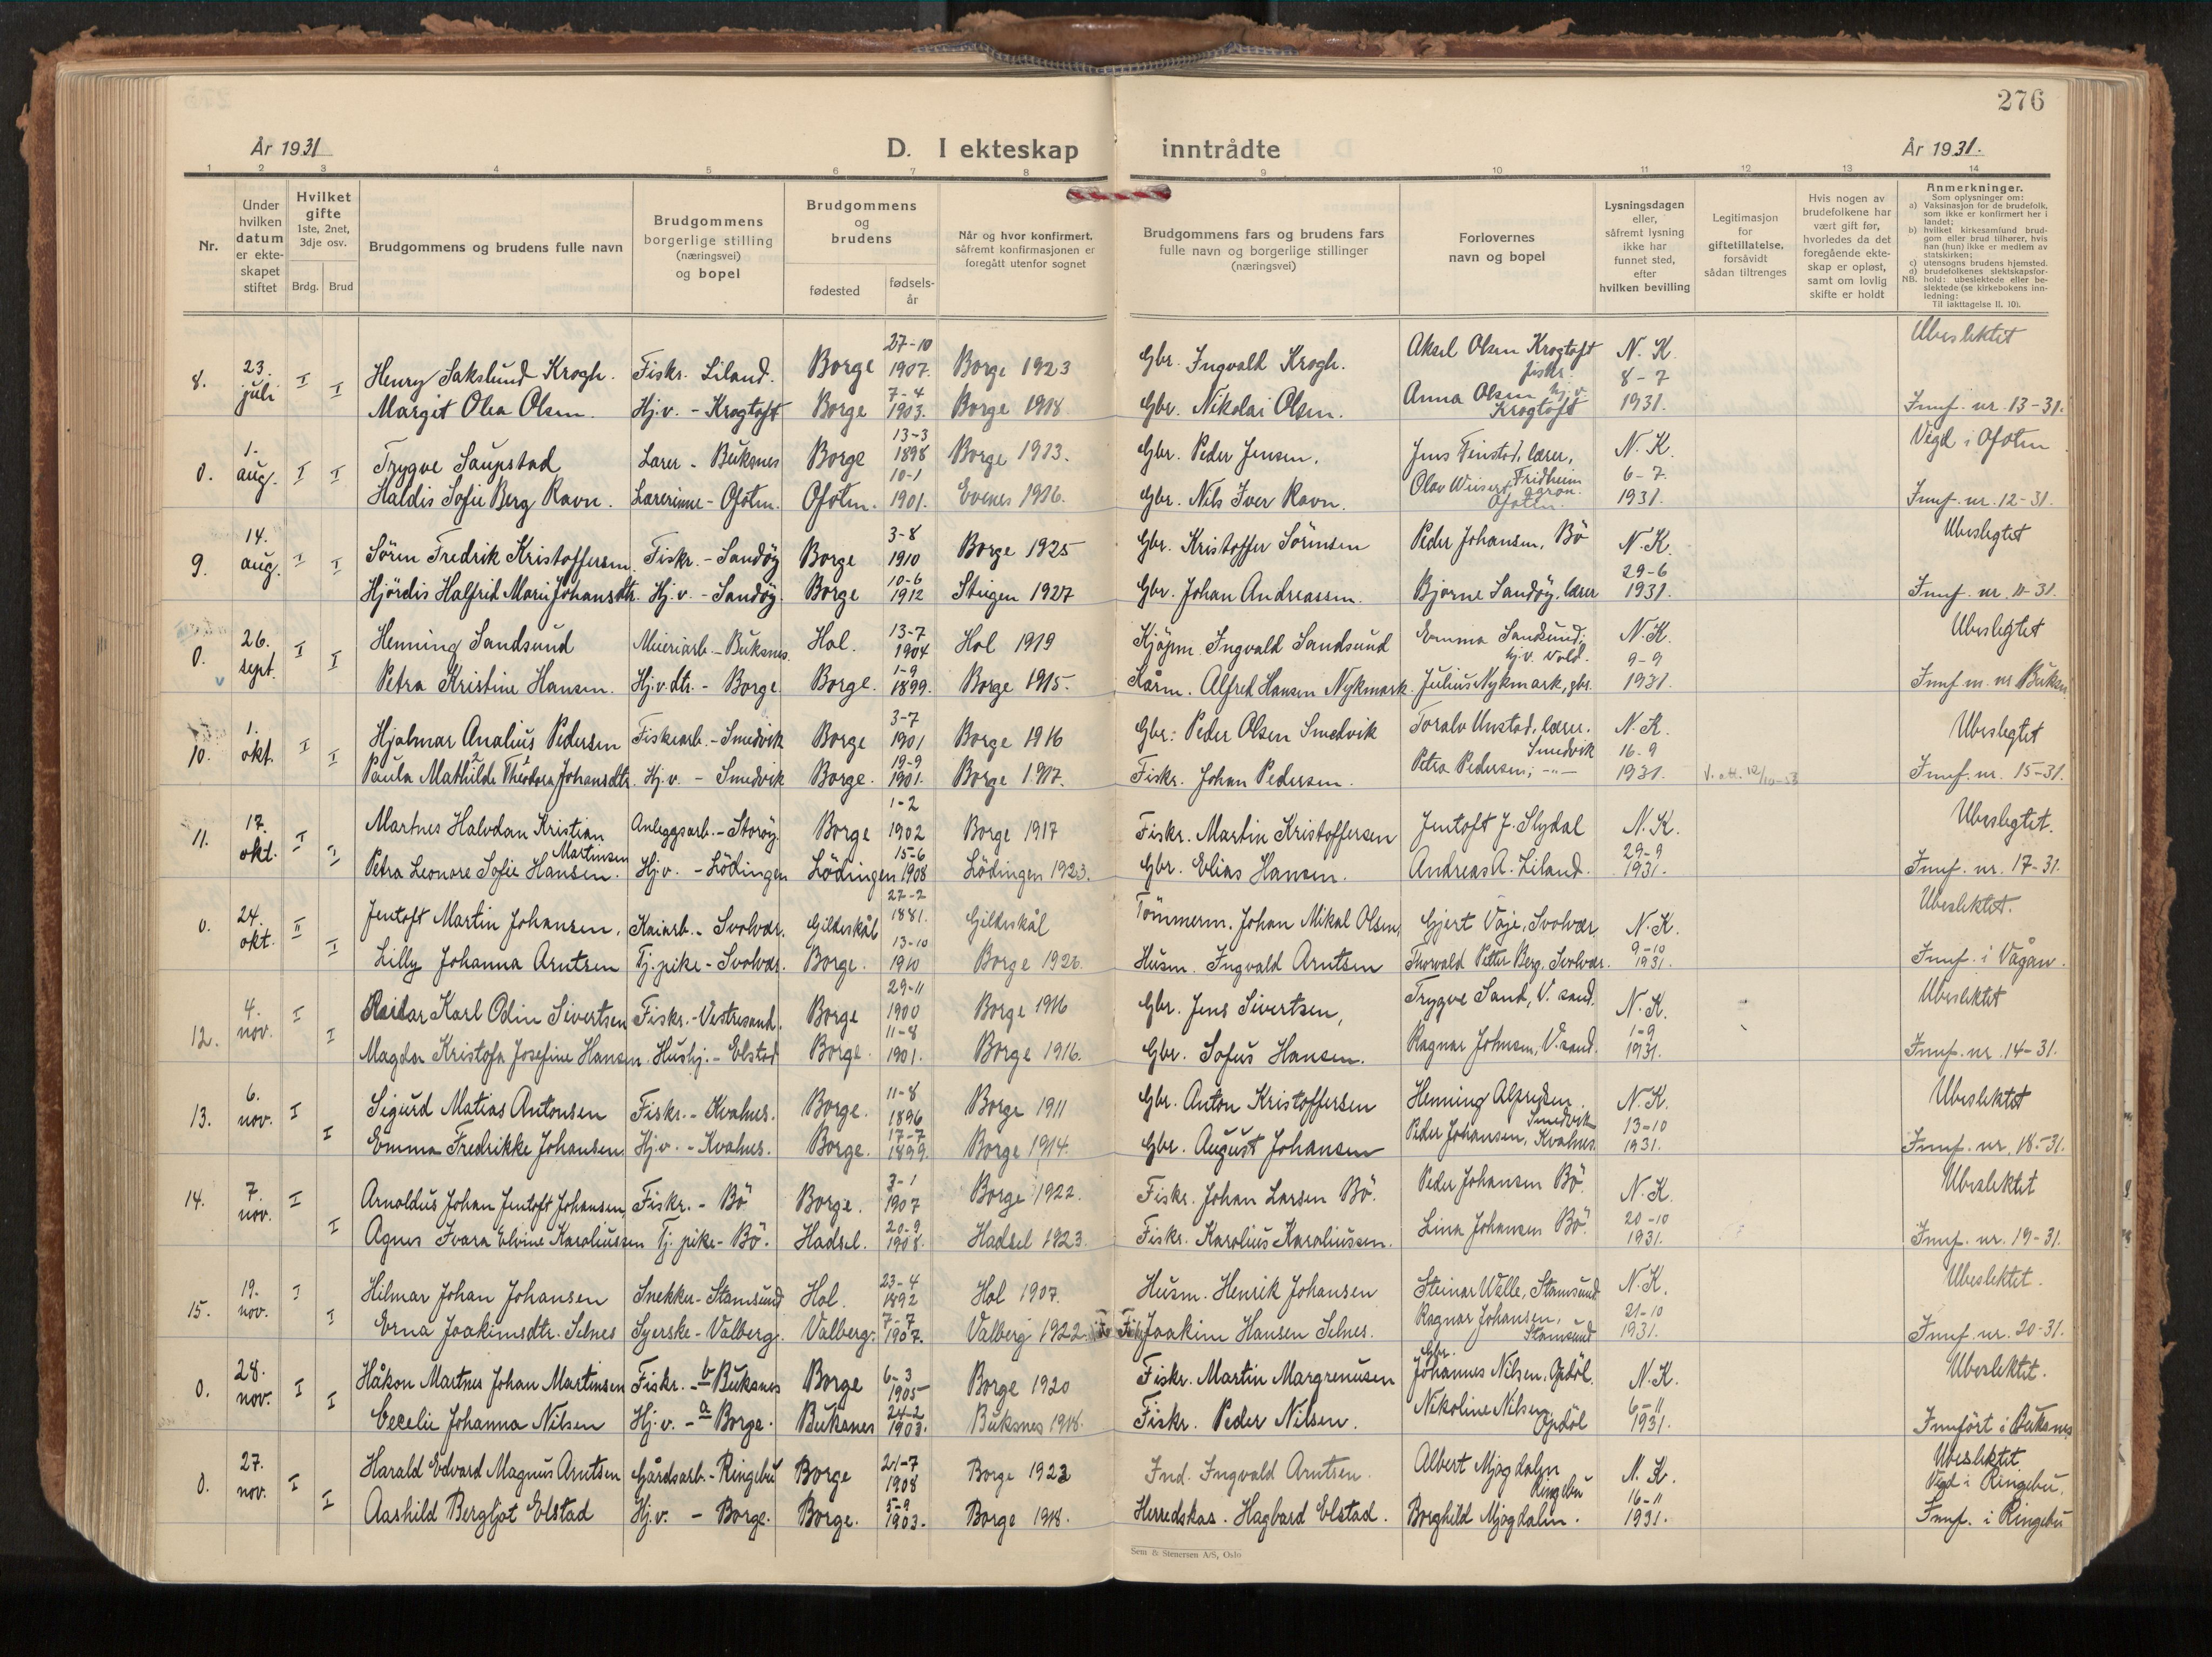 276
År 1931
D. I ekteskap inntrådte
År 1931.
1 2 3 4 5 6 7 8 9 10 11 12 13 14
Nr.
Under hvilken datum er ekteskapet stiftet
Hvilket gifte 1ste, 2net, 3dje osv.
Brdg. Brud
Brudgommens og brudens fulle navn
Brudgommens borgerlige stilling (næringsvei) og bopel
Brudgommens og brudens
fødested
fødselsår
Når og hvor konfirmert, såfremt konfirmasjonen er foregått utenfor sognet
Brudgommens fars og brudens fars fulle navn og borgerlige stillinger (næringsvei)
Forlovernes navn og bopel
Lysningsdagen eller, såfremt lysning ikke har funnet sted, efter hvilken bevilling
Legitimasjon for giftetillatelse, forsåvidt sådan tiltrenges
Hvis nogen av brudefolkene har vært gift før, hvorledes da det foregående ekteskap er opløst, samt om lovlig skifte er holdt
Anmerkninger.
Som oplysninger om:
a) Vaksinasjon for de brudefolk, som ikke er konfirmert her i landet;
b) hvilket kirkesamfund brudgom eller brud tilhører, hvis han (hun) ikke er medlem av statskirken;
c) utensogns brudens hjemsted.
d) brudefolkenes slektskapsforhold: ubeslektede eller beslektede (se kirkebokens innledning:
NB.
Til iakttagelse II, 10).
8. 23. juli I Henry Sakslund Krogh. Fiskr. Liland. Borge 27-10 1907. Borge 1923 Gbr. Ingvald Krogh. Aksel Olsen Krogtoft fiskr. N. K. 8-7 1931. Ubeslektet
I Margit Olea Olsen. Hj.v. - Krogtoft Borge 7-4 1903. Borge 1918. Gbr. Nikolai Olsen. Anna Olsen hj.v. Krogtoft Innf. nr. 13-31.
0. 1. aug. I Trygve Saupstad Lærer - Buksnes Borge 13-3 1898 Borge 1913. Gbr. Peder Jensen. Jens Finstad, lærer, N. K. 6-7 1931. Vigd i Ofoten
I Haldis Sofie Berg Ravn. Lærerinne - Ofoten. Ofoten. 10-1 1901. Evenes 1916. Gbr. Nils Iver Ravn. Olav Fridheim Ofoten. Innf. nr. 12-31.
9. 14. aug. I Sören Fredrik Kristoffersen Fiskr. - Sandöy Borge 3-8 1910 Borge 1925 Gbr. Kristoffer Sörensen Peder Johansen, Bö N. K. 29-6 1931. Ubeslegtet
I Hjördis Halfrid Marie Johansdtr. Hj.v. - Sandöy. Borge 10-6 1912 Steigen 1927 Gbr. Johan Andreassen. Bjarne Sandöy, lærer Innf. nr. 11-31.
0. 26. sept. I Henning Sandsund Meieriarb. - Buksnes. Hol. 13-7 1904 Hol 1919 Kjöpm. Ingvald Sandsund Emma Sandsund, hj.v. Vold. N. K. 9-9 1931. Ubeslegtet
I Petra Kristine Hansen. Hj.v.dtr. - Borge. Borge. 1-9 1899. Borge 1915. Kårm. Alfred Hansen Nykmark. Julius Nykmark, gbr. Innf. m. nr Buksn.
10. 1. okt. I Hjalmar Analius Pedersen Fiskearb. - Smedvik Borge 3-7 1901 Borge 1916 Gbr: Peder Olsen Smedvik Toralv Unstad, lærer. Smedvik N. K. 16-9 1931. Ubeslegtet
I Paula Mathilde Theodora Johansdtr. Hj.v. - Smedvik Borge. 19-9 1901. Borge 1917. Fiskr. Johan Pedersen. Petra Pedersen; -"- Innf. nr. 15-31.
11. 17. okt. I Martnes Halvdan Kristian Martinsen Anleggsarb. - Storöy. Borge 1-2 1902 Borge 1917 Fiskr. Martin Kristoffersen Jentoft J. Slydal N. K. 29-9 1931. Ubeslegtet.
I Petra Leonore Sofie Hansen. Hj.v. - Lödingen Lödingen 15-6 1908 Lödingen 1923. Gbr. Elias Hansen. Andreas A. Liland. Innf. nr. 17-31.
0. 24. okt. II Jentoft Martin Johansen. Kaiarb. - Svolvær. Gildeskål 27-2 1881. Gildeskål Tömmerm. Johan Mikal Olsen, Gjert Våje, Svolvær N. K. 9-10 1931. Ubeslektet.
I Lilly Johanna Arntsen Tj.pike - Svolvær. Borge. 13-10 1910 Borge 1926. Husm. Ingvald Arntsen Thorvald Petter Berg, Svolvær. Innf. i Vågan.
12. 4. nov. I Reidar Karl Odin Sivertsen Fiskr. - Vestresand. Borge 29-11 1900 Borge 1916 Gbr. Jens Sivertsen, Trygve Sand, V. sand. N. K. 1-9 1931. Ubeslektet
I Magda Kristofa Josefine Hansen. Hushj. - Elstad Borge. 11-8 1901. Borge 1916. Gbr. Sofus Hansen. Ragnar Johnsen, V. sand. Innf. nr. 14-31.
13. 6. nov. I Sigurd Matias Antonsen Fiskr. - Kvalnes. Borge. 11-8 1896 Borge 1911 Gbr. Anton Kristoffersen Henning Alfredsen. Smedvik N. K. 13-10 1931. Ubeslektet
I Emma Fredrikke Johansen Hj.v. - Kvalnes. Borge. 17-7 1899. Borge 1914. Gbr. August Johansen Peder Johansen, Kvalnes Innf. nr. 18-31.
14. 7. nov. I Arnoldus Johan Jentoft Johansen Fiskr. - Bö Borge. 3-1 1907 Borge 1922. Fiskr. Johan Larsen Bö. Peder Johansen Bö. N. K. 20-10 1931. Ubeslektet
I Agnes Ivara Elvine Karoliussen Tj. pike - Bö. Hadsel. 20-9 1908. Hadsel 1923. Fiskr. Karolius Karoliussen. Lina Johansen Bö. Innf. nr. 19-31.
15. 19. nov. I Hilmar Johan Johansen Snekker - Stamsund Hol. 23-4 1892 Hol 1907. Husm. Henrik Johansen Steinar Welle, Stamsund N. K. 21-10 1931. Ubeslektet.
I Erna Joakimsdtr. Selnes Syerske - Valberg. Valberg. 7-7 1907. Valberg 1922. Joakim Hansen Selnes. Ragnar Johansen, Stamsund Innf. nr. 20-31.
0. 28. nov. I Håkon Martnes Johan Martinsen Fiskr. - b Buksnes Borge 6-3 1905 Borge 1920 Fiskr. Martin Margrenusen Gbr. Johannes Nilsen, Opdöl. N. K. 6-11 1931. Ubeslektet.
I Cecelie Johanna Nilsen Hj.v. - a Borge. Buksnes 24-2 1903. Buksnes 1918. Fiskr. Peder Nilsen. Nikoline Nilsen Opdöl Innfört i Buksnes
0. 27. nov. I Harald Edvard Magnus Arntsen Gårdsarb. - Ringebu Borge 21-7 1908 Borge 1923 Ind. Ingvald Arntsen. Albert Mjogdalen Ringebu N. K. 16-11 1931. Ubeslektet. Vigd i Ringebu.
I Aashild Bergljot Elstad Hj.v. - Borge. Borge. 5-9 1903. Borge 1918. Herredskas. Hagbard Elstad. Borghild Mjogdalen. Innf. i Ringebu
Sem & Stenersen A/S, Oslo